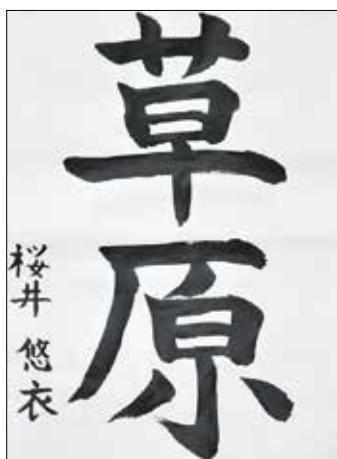 草原
桜井 悠衣